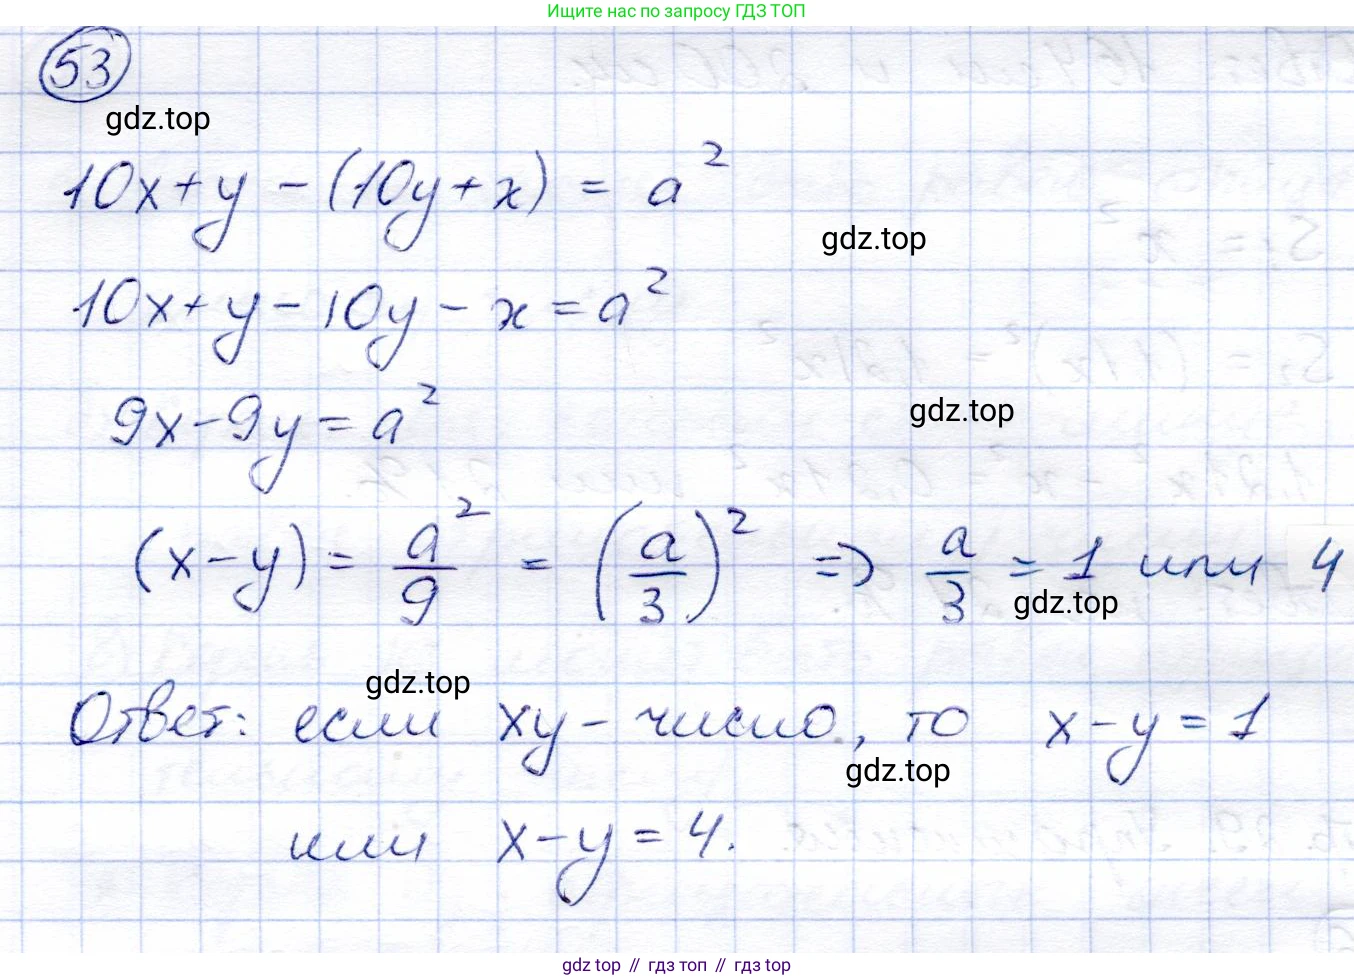 Ищите нас по запросу ГДЗ ТОП
53
gdz.top
10x+y - (10y+x) = a²
gdz.top
10x+y-10y-x=a²
9x-9y=a²
gdz.top
(x-y) = a²/9 = (a/3)² => a/3 = 1 или 4
gdz.top
gdz.top
Ответ: если xy - число, то x-y=1
gdz.top
или x-y=4.
gdz top // гдз топ // gdz top